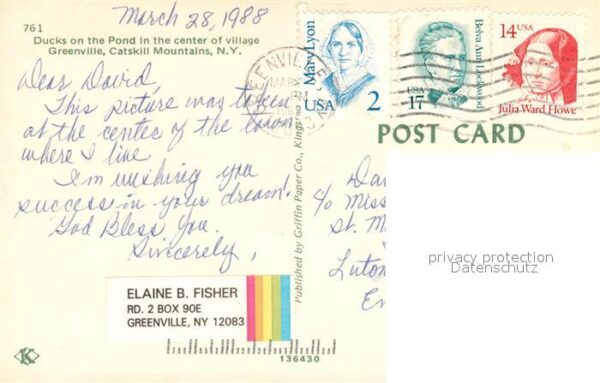 March 28, 1988
761
Ducks on the Pond in the center of village
Greenville, Catskill Mountains, N.Y.
Dear David,
This picture was taken
at the center of the town
where I live
I'm wishing you
success in your dream!
God Bless You.
Sincerely,
ELAINE B. FISHER
RD. 2 BOX 90E
GREENVILLE, NY 12083
K
Published by Griffin Paper Co.,
136430
GREENVILLE
MAR
Mary Lyon
USA 2
Belva Ann Lockwood
USA
17
14 USA
Julia Ward Howe
POST CARD
Da
c/o Miss
St. M
Luton
En
privacy protection
Datenschutz